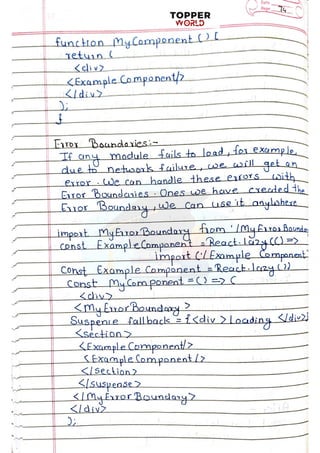 TOPPER
WORLD
Date
Page 74
function MyComponent () {
return (
<div>
<Example Component/>
</div>
);
}
Error Boundaries:-
If any module fails to load, for example,
due to network failure, we will get an
error. We can handle these errors with
Error Boundaries. Ones we have created the
Error Boundary, we can use it anywhere
import MyErrorBoundary from './MyErrorBoundary
const ExampleComponent = React.lazy(() =>
import('./Example Component'
Const Example Component = React.lazy())
Const MyComponent = () => (
<div>
<MyErrorBoundary>
Suspence fallback = {<div> Loading </div>}
<section>
<Example Component/>
<Example Component/>
</section>
</suspense>
</MyErrorBoundary>
</div>
);